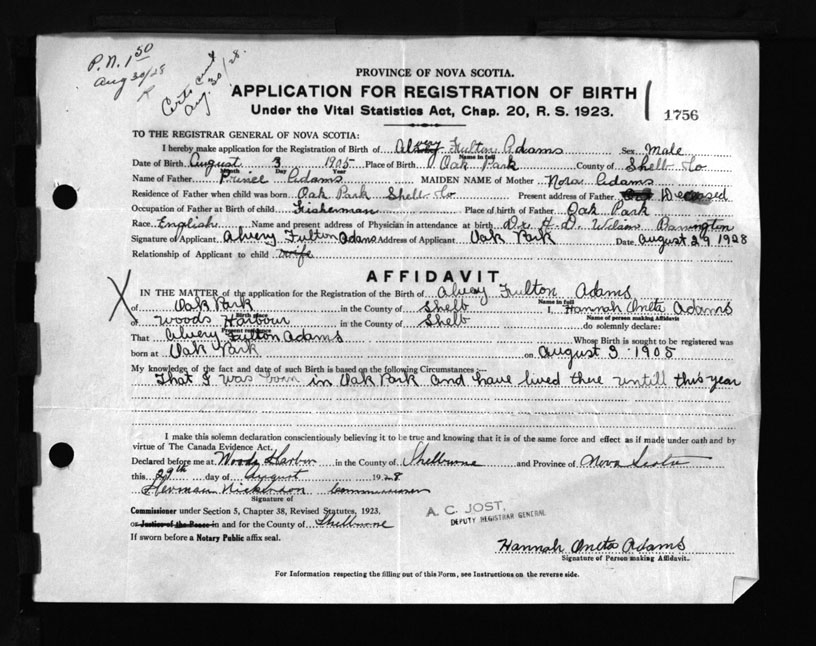 P.N. 1 50
Aug 30/28
R
Certs cmt
Aug. 30/28.
PROVINCE OF NOVA SCOTIA.
APPLICATION FOR REGISTRATION OF BIRTH
Under the Vital Statistics Act, Chap. 20, R. S. 1923.
1756
TO THE REGISTRAR GENERAL OF NOVA SCOTIA:
I hereby make application for the Registration of Birth of Fulton Adams Sex Male
Name in full
Date of Birth August 3 1905 Place of Birth Oak Park County of Shelb Co
Month Day Year
Name of Father Prince Adams MAIDEN NAME of Mother Nora Adams
Residence of Father when child was born Oak Park Shelb Co Present address of Father Deceased
Occupation of Father at Birth of child Fisherman Place of birth of Father Oak Park
Race English Name and present address of Physician in attendance at birth Dr. H. D. Wilson Barrington
Signature of Applicant Alvery Fulton Adams Address of Applicant Oak Park Date August 29 1928
Relationship of Applicant to child wife
AFFIDAVIT
IN THE MATTER of the application for the Registration of the Birth of Alvey Fulton Adams
Name in full
of Oak Park in the County of Shelb I, Hannah Oneta Adams
Place of Birth Name of person making Affidavit
of Woods Harbour in the County of Shelb do solemnly declare:
Present residence
That Alvery Fulton Adams Whose Birth is sought to be registered was
born at Oak Park on August 3 1905
My knowledge of the fact and date of such Birth is based on the following Circumstances:—
That I was born in Oak Park and have lived there untill this year
I make this solemn declaration conscientiously believing it to be true and knowing that it is of the same force and effect as if made under oath and by
virtue of The Canada Evidence Act.
Declared before me at Woods Harbor in the County of Shelburne and Province of Nova Scotia
this 29th day of August 1928
Herman Nickerson Commissioner
Signature of
Commissioner under Section 5, Chapter 38, Revised Statutes, 1923.
or Justice of the Peace in and for the County of Shelburne
If sworn before a Notary Public affix seal.
A. C. JOST,
DEPUTY REGISTRAR GENERAL
Hannah Oneta Adams
Signature of Person making Affidavit.
For Information respecting the filling out of this Form, see Instructions on the reverse side.